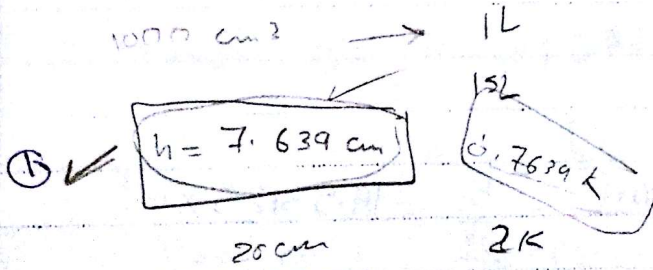 1000 cm³ → 1L
15L
① ✓ h = 7.639 cm
0.7639 K
20 cm
2K